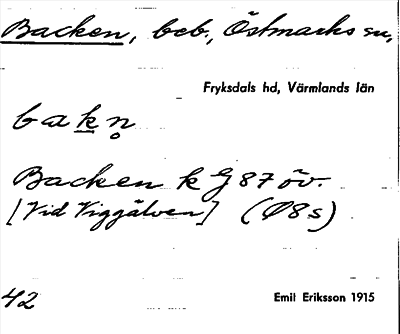 Backen, beb., Östmarks sn,
Fryksdals hd, Värmlands län
bakn̥
Backen k G 87 öv.
[Vid Viggälven] (Ø8s)
42
Emil Eriksson 1915